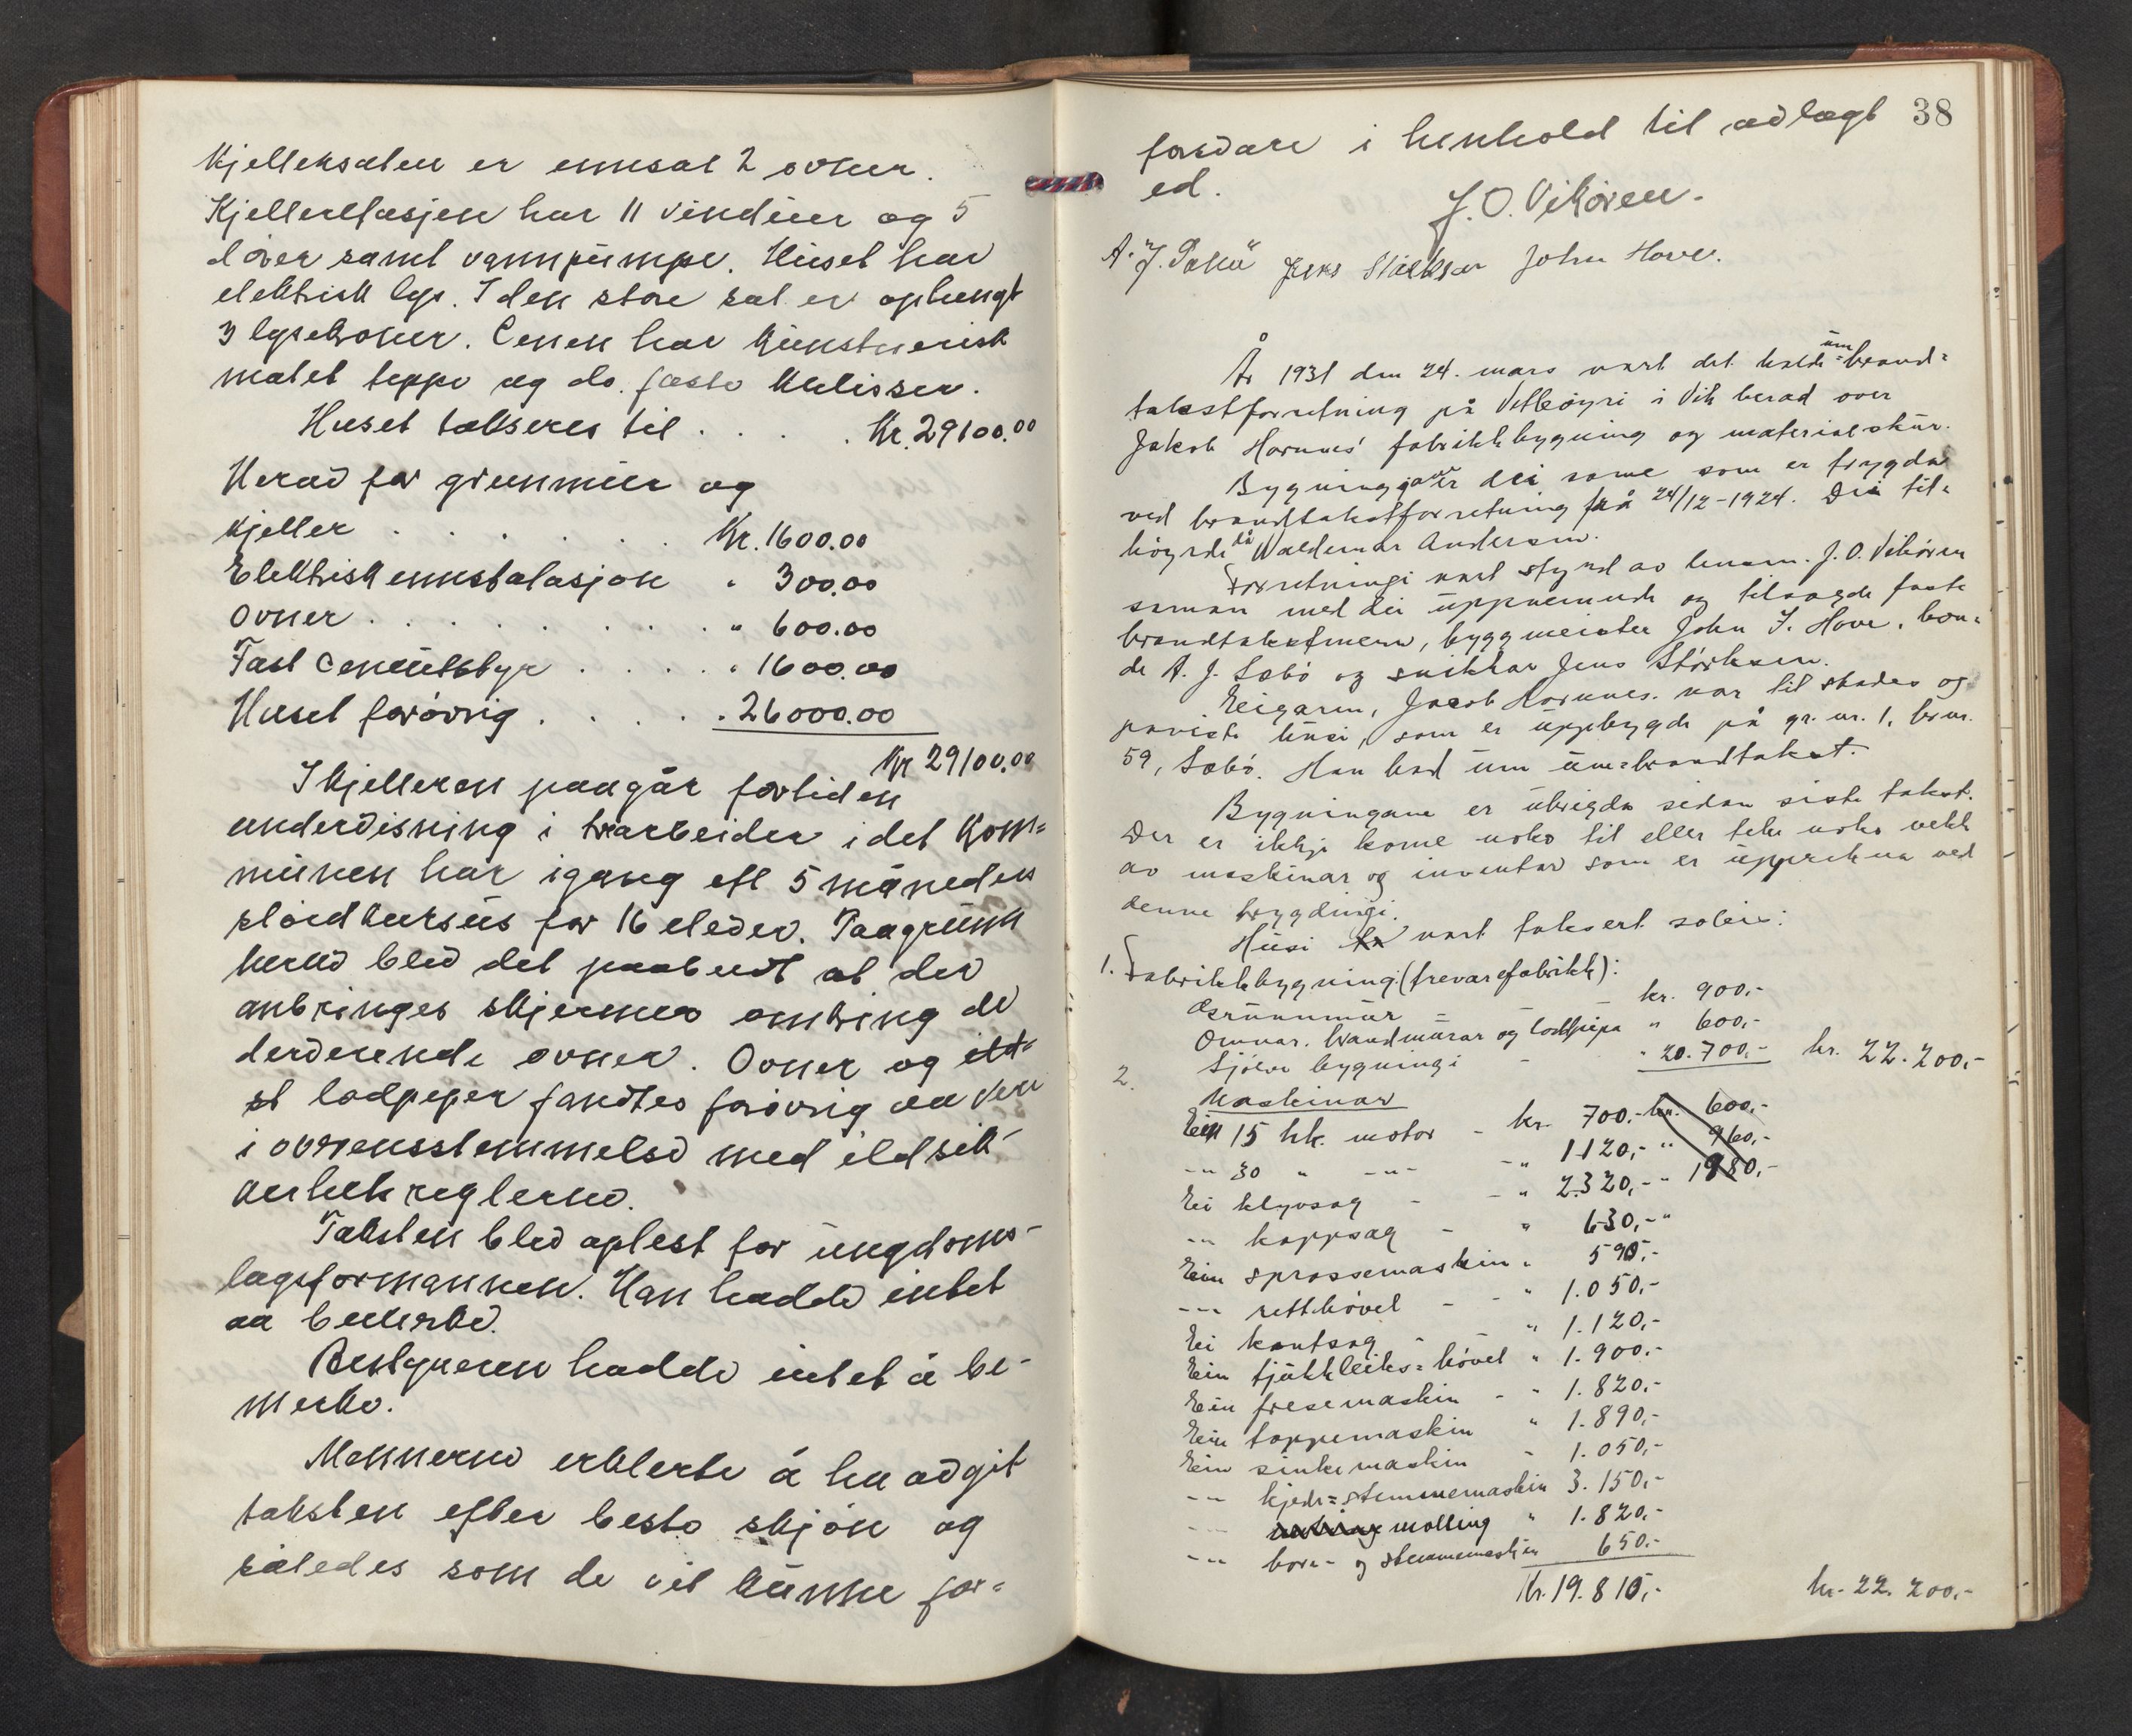 Kjellersalen er ennsat 2 ovner.
Kjelleretasjen har 11 vinduer og 5
dører samt vannpumpe. Huset har
elektrisk lys. I den store sal er ophengt
3 lysekroner. Cenen har kunstnerisk
malet teppe og do. faste kulisser.
Huset takseres til . . . . Kr. 29100.00
Herav for grunnmur og
kjeller . . . . . . Kr. 1600.00
Elektrisk ennstalasjon " 300.00
Ovner . . . . . . . . " 600.00
Fast Ceneutstyr . . . . " 1600.00
Huset forøvrig . . . . . 26000.00
Kr 29100.00
I kjelleren paagår fortiden
undervisning i trearbeider idet kom=
munen har igang ett 5 måneders
sløidkursus for 16 elever. Paagrunn
herav blev det paabudt at der
anbringes skjermer omkring de
derværende ovner. Ovner og ild-
st lodpeper fandtes forøvrig aa vere
i overensstemmelse med ildsik-
kerhetsreglerne.
Taksten blev oplest for ungdoms-
lagsformannen. Han hadde intet
aa bemerke.
Bestyreren hadde intet å be-
merke.
Mennerne erklerte å ha avgit
taksten efter beste skjøn og
således som de vil kunne for=
38
forsvare i henhold til avlagt
ed.
J. O. Vikøren.
A. J. Sæbø Jens Stårksen John Hove.
År 1931 den 24. mars vart det halde um=brand=
takstforretning på Vetleøyri i Vik herad over
Jakob Hornnes' fabrikkbygning og materialskur.
Bygningane er dei same som er trygda
ved brandtakstforretning frå 24/12-1924. Dei til=
høyrde då Waldemar Andersen.
Forretningi vart styrd av lensm. J. O. Vikøren
saman med dei uppnemnde og tilsagde faste
brandtakstmenn, byggmeister John J. Hove, bon=
de A. J. Sæbø og snikkar Jens Stårksen.
Eigaren, Jacob Hornnes. var til stades og
paviste husi, som er uppbygde på gr. nr. 1, br. nr.
59, Sæbø. Han bad um um=brandtakst.
Bygningane er ubrigda sidan siste takst.
Der er ikkje kome noko til eller teke noko vekk
av maskinar og inventar som er upprekna ved
denne trygdingi.
Husi vart taksert soleis:
1. Fabrikkbygning: (trevarefabrikk):
Grunnmur kr. 900,-
Omnar. brandmurar og lodpipa " 600,-
Sjølve bygningi - " 20.700,- kr. 22.200,-
2. Maskinar
Ein 15 hk. motor - kr. 700.- kr. 600,-
-"- 30 " -"- -" 1120,- " 960,-
Ei klyvsag - -" 2320,- " 1980,-
-"- kappsag - " 630,- "
Ein sprossemaskin " 595,-
-"- retthøvel - - " 1.050,-
Ei kantsag - " 1.120,-
Ein tjukkleiks=høvel " 1.900,-
Ein fresemaskin - " 1.820,-
Ein tappemaskin " 1.890,-
Ein sinkemaskin - 1.050,-
-"- kjede=stemmemaskin 3.150,-
-"- molling " 1.820,-
-"- bore- og stemmemaskin 650.-
Kr. 19.815,- kr. 22.200,-